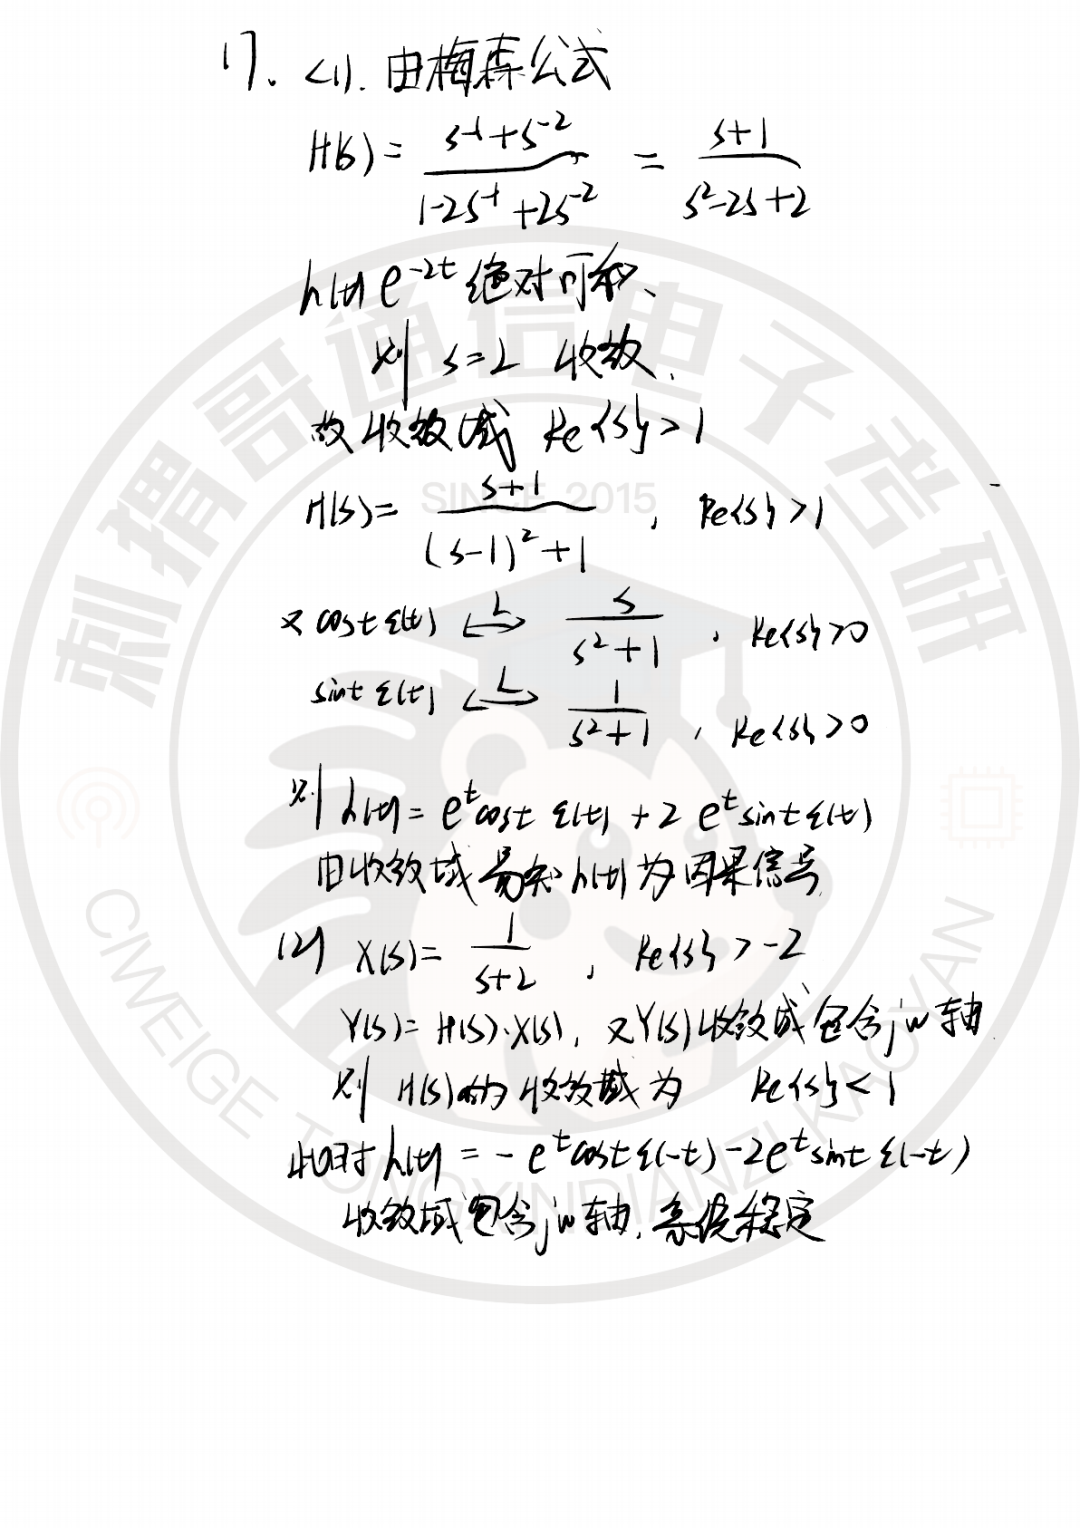 17. <1). 由梅森公式
H(s) = \frac{s^{-1}+s^{-2}}{1-2s^{-1}+2s^{-2}} = \frac{s+1}{s^2-2s+2}
h(t) e^{-2t} 绝对可积、
则 s=2 收敛.
故收敛域 Re{s}>1
H(s) = \frac{s+1}{(s-1)^2+1} , Re{s}>1
又 cost ε(t) \overset{L}{\longleftrightarrow} \frac{s}{s^2+1} , Re{s}>0
sint ε(t) \overset{L}{\longleftrightarrow} \frac{1}{s^2+1} , Re{s}>0
则 h(t) = e^t cost ε(t) + 2 e^t sint ε(t)
由收敛域易知 h(t) 为因果信号
(2) X(s) = \frac{1}{s+2} , Re{s} > -2
Y(s) = H(s)·X(s), 又Y(s)收敛域包含jw轴.
则 H(s)的收敛域为 Re{s}<1
此时 h(t) = -e^t cost ε(-t) -2e^t sint ε(-t)
收敛域包含jw轴. 系统稳定
刺猬哥通信电子考研
SINCE 2015
CIWEIGE TONGXINDIANZI KAOYAN